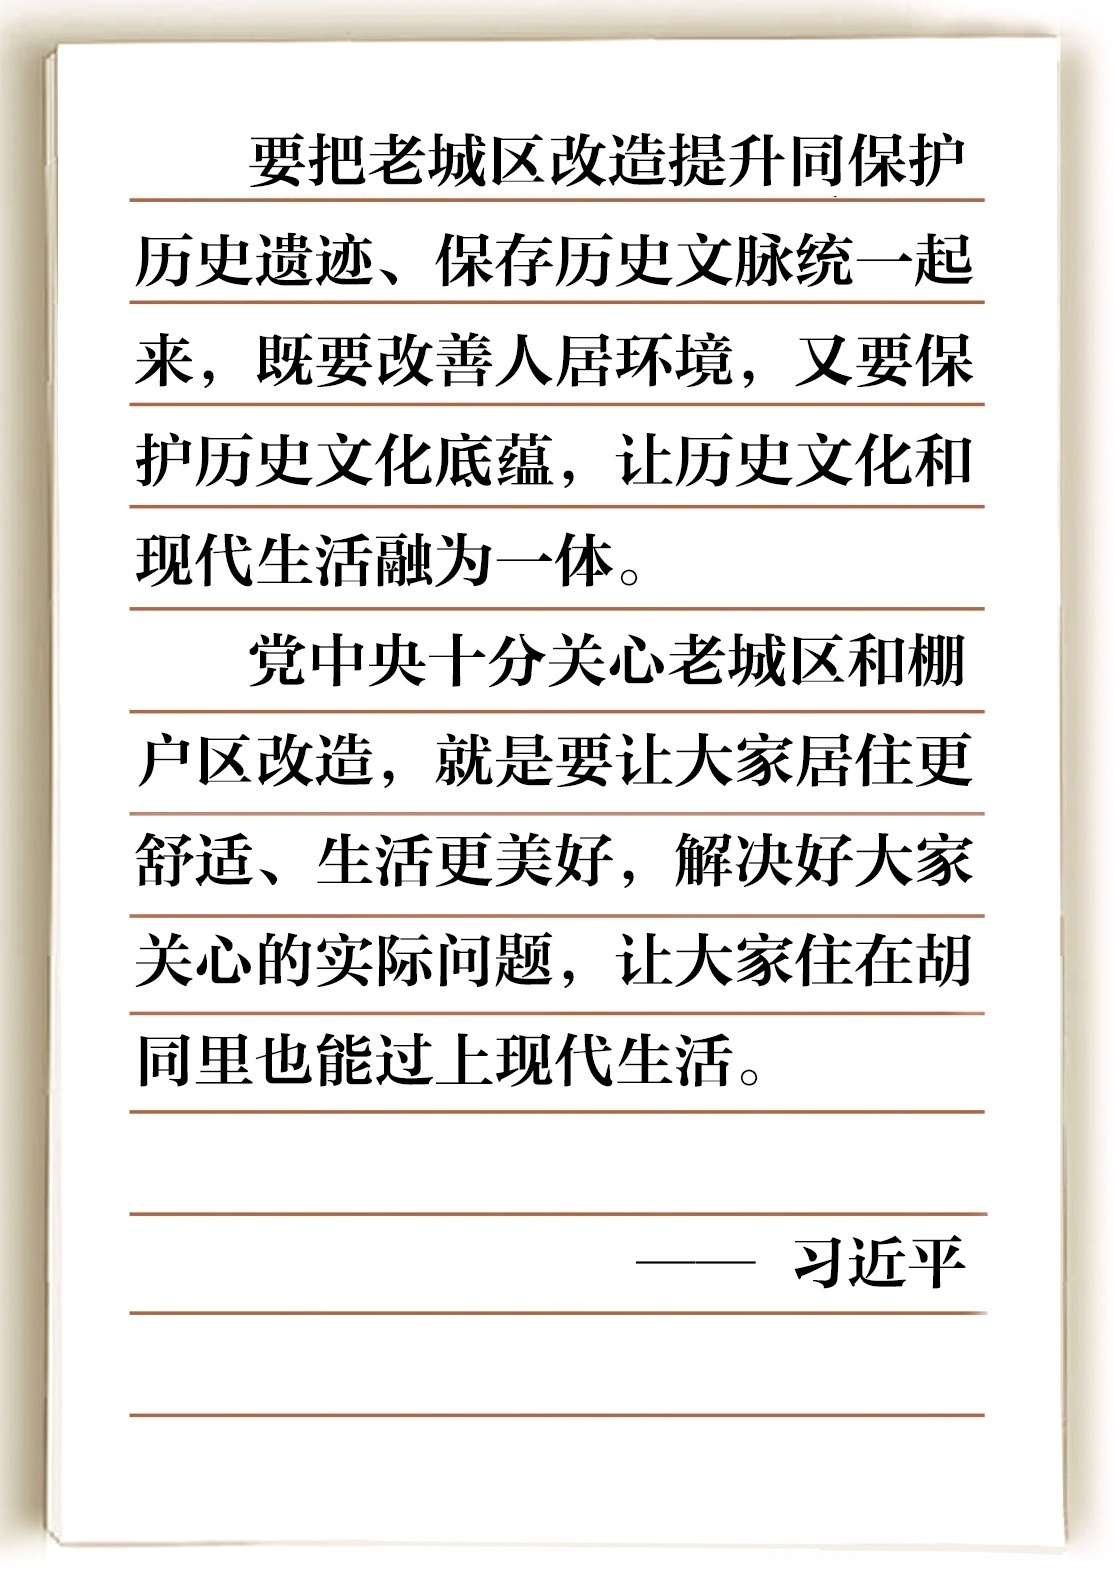 要把老城区改造提升同保护
历史遗迹、保存历史文脉统一起
来，既要改善人居环境，又要保
护历史文化底蕴，让历史文化和
现代生活融为一体。
党中央十分关心老城区和棚
户区改造，就是要让大家居住更
舒适、生活更美好，解决好大家
关心的实际问题，让大家住在胡
同里也能过上现代生活。
—— 习近平